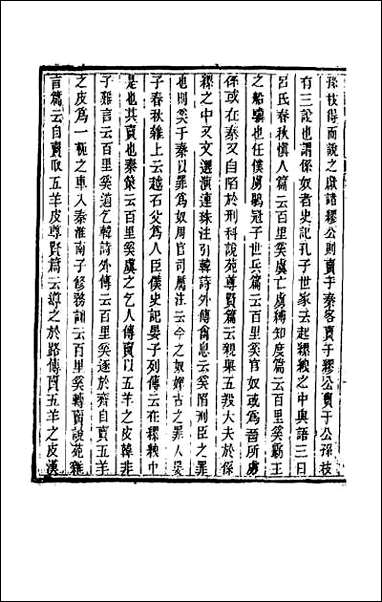 孫枝得而說之獻諸繆公則賣于秦客賣于繆公賣于公孫枝
有三訟也謂係奴者史記孔子世家云起纍紲之中與語三日
呂氏春秋慎人篇云百里奚虞亡虜縛知度篇云百里奚霸王
之船驥也任僕虜鶡冠子世兵篇云百里奚官奴或為晉所虜
係或在秦又自陷於刑科說苑尊賢篇云親舉五羖大夫於係
纍之中又文選演連珠注引韓詩外傳禽息云奚陷刑臣之罪
也則奚于秦以罪為奴周官司厲注云今之奴婢古之罪人晏
子春秋雜上云越石父為人臣僕史記晏子列傳云在縲紲中
是也其賣也秦策云百里奚虞之乞人傳賣以五羊之皮韓非
子難言云百里奚道乞韓詩外傳云百里奚逐於齊自賣五羊
之皮為一軛之車入秦淮南子修務訓云百里奚轉鬻說苑雜
言篇云自賣取五羊皮尊賢篇云導之於路傳賣五羊之皮漢